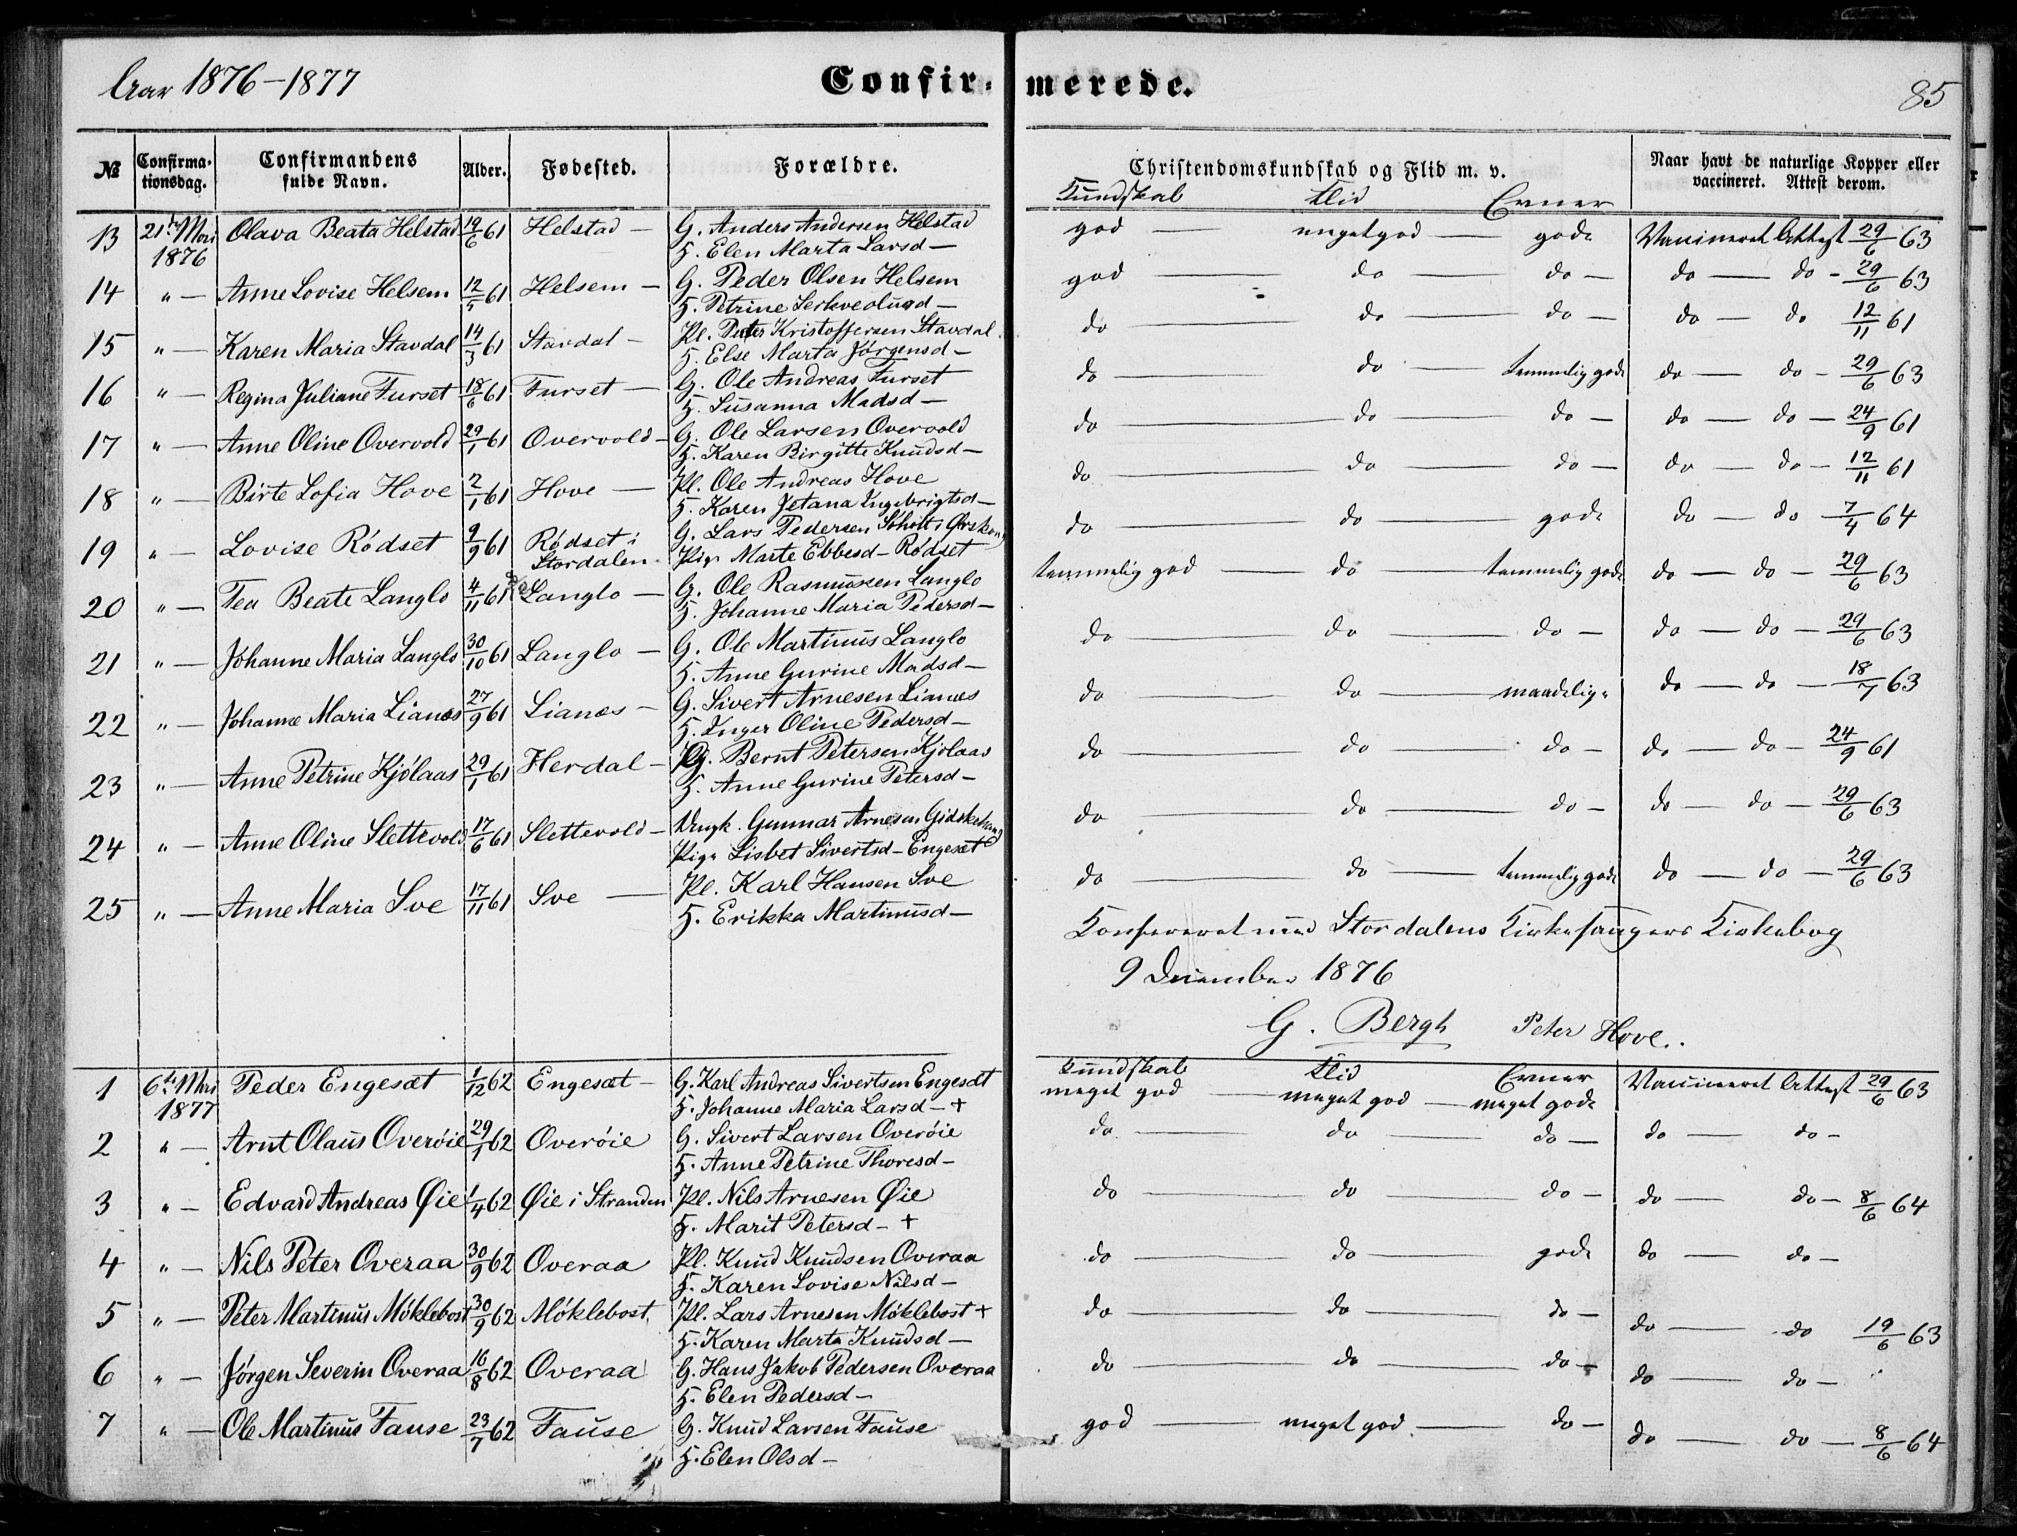 Aar 1876-1877
Confir-merede.
85
№ Confirmationsdag. Confirmandens fulde Navn. Alder. Fødested. Forældre. Christendomskundskab og Flid m. v. Naar havt de naturlige Kopper eller vaccineret. Attest derom.
Kundskab Flid Evner
13 21de Mai Olava Beata Helstad 19/6 61 Helstad — G. Anders Andersen Helstad god — meget god — gode Vaccineret Attest 29/6 63
1876 H. Elen Marta Larsd —
14 " — Anne Lovise Helsem 61 Helsem — G. Peder Olsen Helsem god — do — do — do — do - 29/6 63
H. Petrine
15 " — Karen Maria Stavdal 14/3 61 Stavdal — Pl. Peter Kristoffersen Stavdal do — do — do — do — do 12/11 61
H. Else Marta Jørgensd —
16 " — Regina Juliane Furset 18/6 61 Furset — G. Ole Andreas Furset do — do — temmelig gode do — do - 29/6 63
H. Susanna Madsd —
17 " — Anne Oline Overvold 29/1 61 Overvold — G. Ole Larsen Overvold do — do — do — do — do - 24/9 61
H. Karen Birgitte Knudsd —
18 " — Birte Sofia Hove 2/1 61 Hove — Pl. Ole Andreas Hove do — do — do — do — do - 12/11 61
H. Karen Jetana Ingebrigtsd —
19 " — Lovise Rødset 9/9 61 Rødset i G. Lars Pedersen do — do — gode do — do 7/4 64
Stordalen. Pige Marte Ebbesd — Rødset
20 " — Tea Beate Langlo 4/11 61 Langlo — G. Ole Rasmussen Langlo temmelig god — do — temmelig gode do — do — 29/6 63
H. Johanne Maria Pedersd —
21 " — Johanne Maria Langlo 30/10 61 Langlo — G. Ole Martinus Langlo do — do — do — do — do — 29/6 63
H. Anne Gurine Madsd —
22 " — Johanne Maria Lianes 27/9 61 Lianes — G. Sivert Arnesen Lianes do — do — maadelige do — do — 18/7 63
H. Inger Oline Pedersd —
23 " — Anne Petrine Kjølaas 29/1 61 Herdal — Bernt Petersen Kjølaas do — do — do — do — do — 24/9 61
H. Anne Gurine Petersd —
24 " — Anne Oline Slettevold 17/6 61 Slettevold — Ungk. Gunnar Arnesen do — do — do — do — do — 29/6 63
Pige Lisbet Sivertsd — Engesæt
25 " — Anne Maria Sve 17/11 61 Sve — Pl. Karl Hansen Sve do — do — temmelig gode do — do — 29/6 63
H. Erikka Martinusd —
Konfereret med Stordalens Kirkesangers Kirkebog
9 December 1876
G. Bergh Peter Hove.
Kundskab Flid Evner
1 6te Mai Peder Engesæt 1/12 62 Engesæt — G. Karl Andreas Sivertsen Engesæt meget god — meget god — meget gode Vaccineret Attest 29/6 63
1877 H. Johanne Maria Larsd — +
2 " — Arnt Olaus Overøie 29/1 62 Overøie G. Sivert Larsen Overøie do — do — do — do — do —
H. Anne Petrine Thoresd —
3 " — Edvard Andreas Øie 1/4 62 Øie i Stranden Pl. Nils Arnesen Øie do — do — do — do — do — 8/6 64
H. Marit Petersd — +
4 " — Nils Peter Overaa 30/9 62 Overaa Pl. Knud Knudsen Overaa do — do — gode do — do —
H. Karen Lovise Nilsd —
5 " — Peter Martinus Møklebost 30/9 62 Møklebost. Pl. Lars Arnesen Møklebost + do — do — do — do — do 19/6 63
H. Karen Marta Knudsd —
6 " — Jørgen Severin Overaa 16/8 62 Overaa G. Hans Jakob Pedersen Overaa do — do — do — do — do —
H. Elen Pedersd —
7 " — Ole Martinus Fause 23/7 62 Fause G. Knud Larsen Fause god — meget god — do — do — do — 8/6 64
H. Elen Olsd —